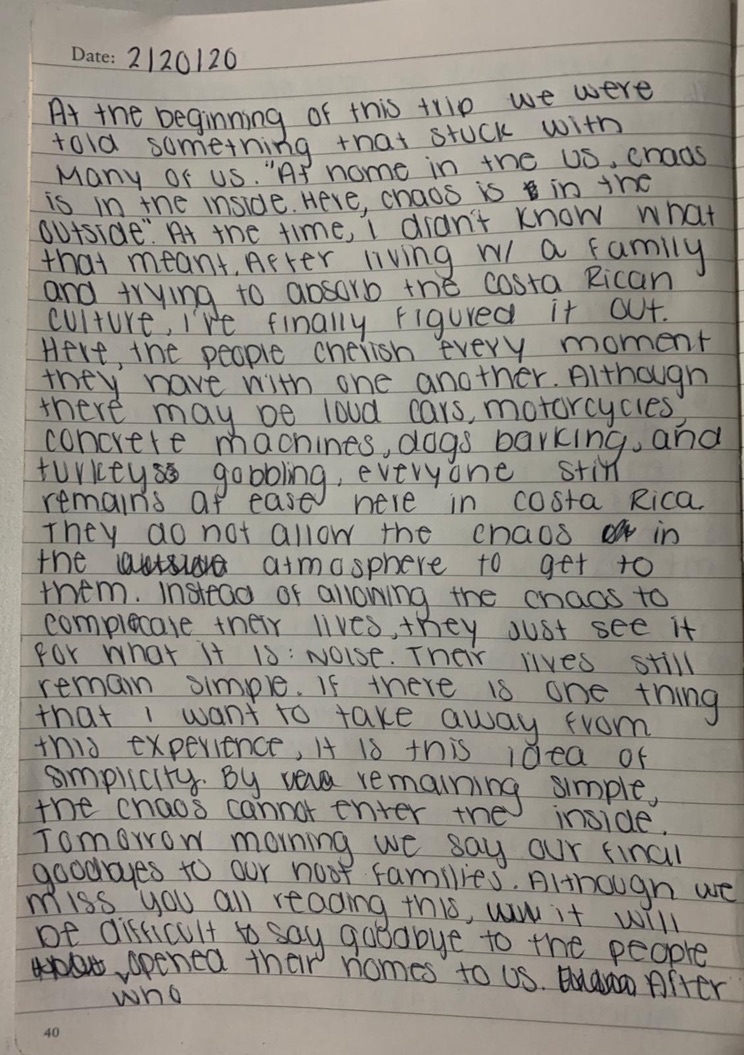 Date: 2/20/20
At the beginning of this trip we were
told something that stuck with
many of us. "At home in the US, chaos
is in the inside. Here, chaos is in the
outside". At the time, i didn't know what
that meant. After living w/ a family
and trying to absorb the Costa Rican
culture, i've finally figured it out.
Here, the people cherish every moment
they have with one another. Although
there may be loud cars, motorcycles,
concrete machines, dogs barking, and
turkeys gobbling, everyone still
remains at ease here in Costa Rica.
They do not allow the chaos in
the atmosphere to get to
them. Instead of allowing the chaos to
complecate their lives, they just see it
for what it is: Noise. Their lives still
remain simple. If there is one thing
that i want to take away from
this experience, it is this idea of
simplicity. By remaining simple,
the chaos cannot enter the inside.
Tomorrow morning we say our final
goodbyes to our host families. Although we
miss you all reading this, it will
be difficult to say goodbye to the people
who opened their homes to us. After
40